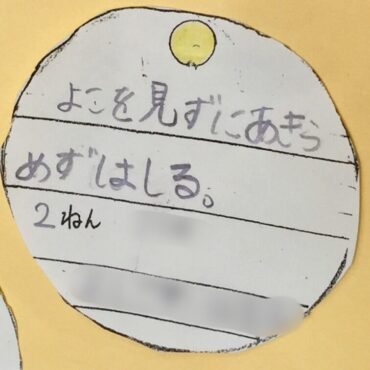 よこを見ずにあきら
めずはしる。
2ねん